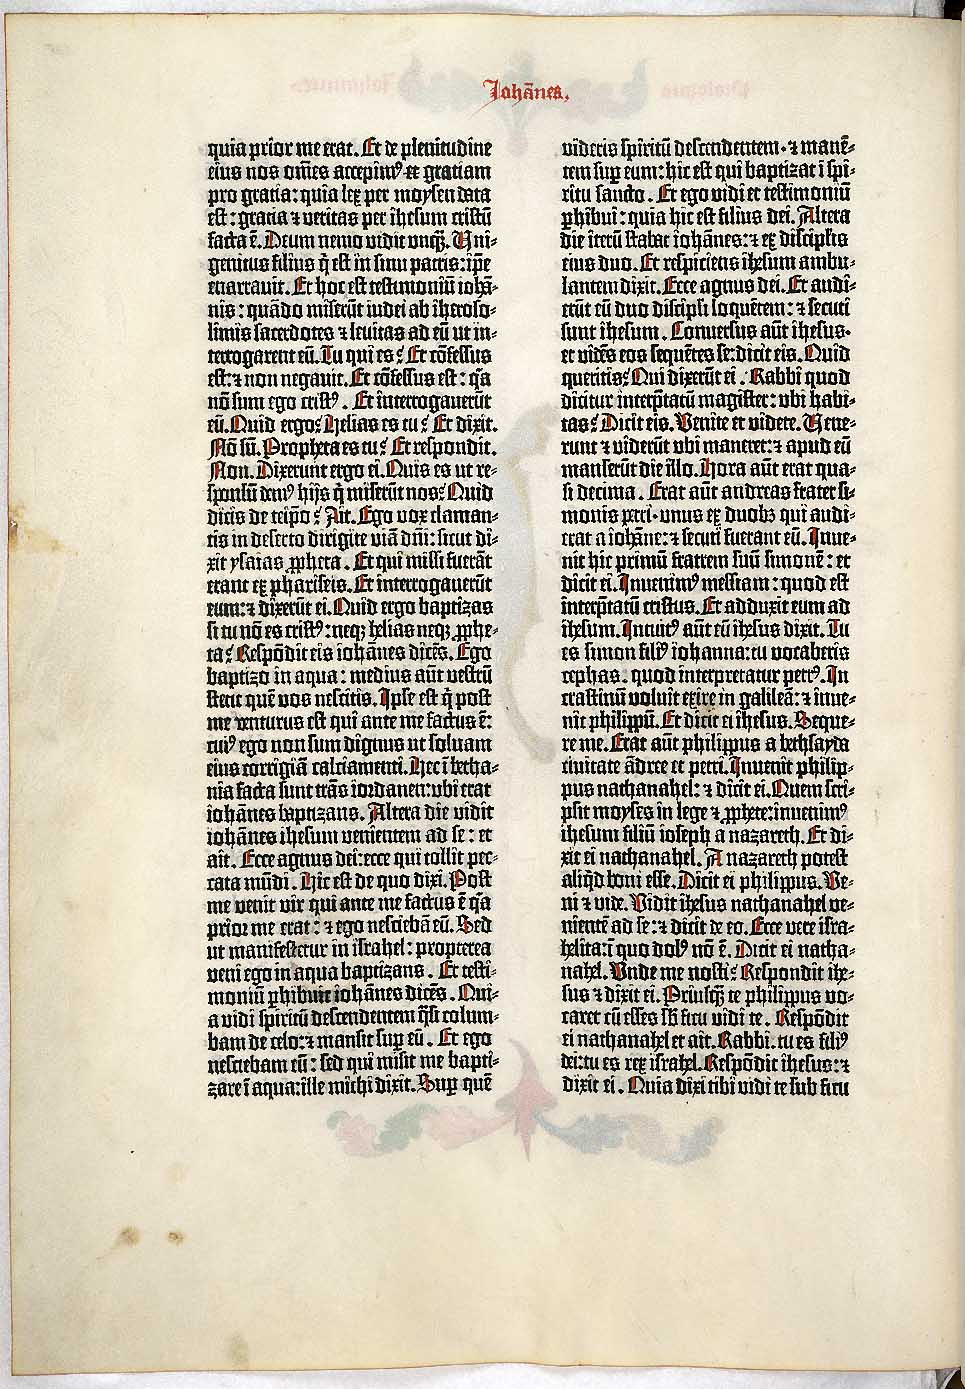 Johãnes.
quia prior me erat. Et de plenitudine
eius nos om̃es accepimꝰ· et gratiam
pro gratia: quia lex per moysen data
est: gracia ⁊ veritas per ihesum cristũ
facta ē. Deum nemo vidit unq̃ꝫ. Uni⸗
genitus filius q̇ est in sinu patris: ip̃e
enarravit. Et hoc est testimoniũ iohã⸗
nis: quãdo miserũt iudei ab iheroso⸗
limis sacerdotes ⁊ levitas ad eũ ut in⸗
terrogarent eũ. Tu qui es? Et cõfessus
est: ⁊ non negavit. Et cõfessus est: q̃a
nõ sum ego cristꝰ. Et interrogaverũt
eũ. Quid ergo? Helias es tu? Et dixit.
Nõ sũ. Propheta es tu? Et respondit.
Non. Dixerunt ergo ei. Quis es ut re⸗
sponsũ demꝰ hijs q̇ miserũt nos? Quid
dicis de teip̃o? Ait. Ego vox claman⸗
tis in deserto dirigite viã dñi: sicut di⸗
xit ysaias ꝓpheta. Et qui missi fuerãt
erant ex phariseis. Et interrogaverũt
eum: ⁊ dixerũt ei. Quid ergo baptizas
si tu nõ es cristꝰ: neqꝫ helias neqꝫ ꝓphe⸗
ta? Respõdit eis iohãnes dicẽs. Ego
baptizo in aqua: medius aũt vestrũ
stetit quẽ vos nescitis. Ipse est q̇ post
me venturus est qui ante me factus ẽ:
cuiꝰ ego non sum dignus ut solvam
eius corrigiã calciamenti. Hec ĩ betha⸗
nia facta sunt trãs iordanen: ubi erat
iohãnes baptizans. Altera die vidit
iohãnes ihesum venientem ad se: et
ait. Ecce agnus dei: ecce qui tollit pec⸗
cata mũdi. Hic est de quo dixi. Post
me venit vir qui ante me factus ẽ q̃a
prior me erat: ⁊ ego nesciebã eũ. Sed
ut manifestetur in israhel: propterea
veni ego in aqua baptizans. Et testi⸗
moniũ ꝑhibuit iohãnes dicẽs. Qui⸗
a vidi spiritũ descendentem q̃si colum⸗
bam de celo: ⁊ mansit suꝑ eũ. Et ego
nesciebam eũ: sed qui misit me bapti⸗
zare ĩ aqua: ille michi dixit. Suꝑ quẽ
videris spiritũ descendentem· ⁊ manẽ⸗
tem suꝑ eum: hic est qui baptizat ĩ spi⸗
ritu sancto. Et ego vidi et testimoniũ
ꝑhibui: quia hic est filius dei. Altera
die iterũ stabat iohãnes: ⁊ ex discipĺis
eius duo. Et respiciens ihesum ambu⸗
lantem dixit. Ecce agnus dei. Et audi⸗
erũt eũ duo discipĺi loquẽtem: ⁊ secuti
sunt ihesum. Conversus aũt ihesus·
et vidẽs eos sequẽtes se: dicit eis. Quid
queritis? Qui dixerũt ei. Rabbi quod
dicitur interp̃tatũ magister: ubi habi⸗
tas? Dicit eis. Venite et videte. Vene⸗
runt ⁊ viderũt ubi maneret: ⁊ apud eũ
manserũt die illo. Hora aũt erat qua⸗
si decima. Erat aũt andreas frater si⸗
monis petri· unus ex duobꝫ qui audi⸗
erat a iohãne: ⁊ secuti fuerant eũ. Inve⸗
nit hic primũ fratrem suũ simonẽ: et
dicit ei. Invenimꝰ messiam: quod est
interp̃tatũ cristus. Et adduxit eum ad
ihesum. Intuitꝰ aũt eũ ihesus dixit. Tu
es simon filiꝰ iohanna: tu vocaberis
cephas. quod interpretatur petrꝰ. In
crastinũ voluit exire in galileã: ⁊ inve⸗
nit philippũ. Et dicit ei ihesus. Seque⸗
re me. Erat aũt philippus a bethsayda
civitate ãdree et petri. Invenit philip⸗
pus nathanahel: ⁊ dicit ei. Quem scri⸗
psit moyses in lege ⁊ ꝓphete: invenimꝰ
ihesum filiũ ioseph a nazareth. Et di⸗
xit ei nathanahel. A nazareth potest
aliq̇d boni esse. Dicit ei philippus. Ve⸗
ni ⁊ vide. Vidit ihesus nathanahel ve⸗
nientẽ ad se: ⁊ dicit de eo. Ecce vere isra⸗
helita: ĩ quo dolꝰ nõ ẽ. Dicit ei natha⸗
nahel. Unde me nosti? Respondit ihe⸗
sus ⁊ dixit ei. Priusq̃ꝫ te philippus vo⸗
caret cũ esses sb̃ ficu vidi te. Respõdit
ei nathanahel et ait. Rabbi. tu es filiꝰ
dei: tu es rex israhel. Respõdit ihesus: ⁊
dixit ei. Quia dixi tibi vidi te sub ficu